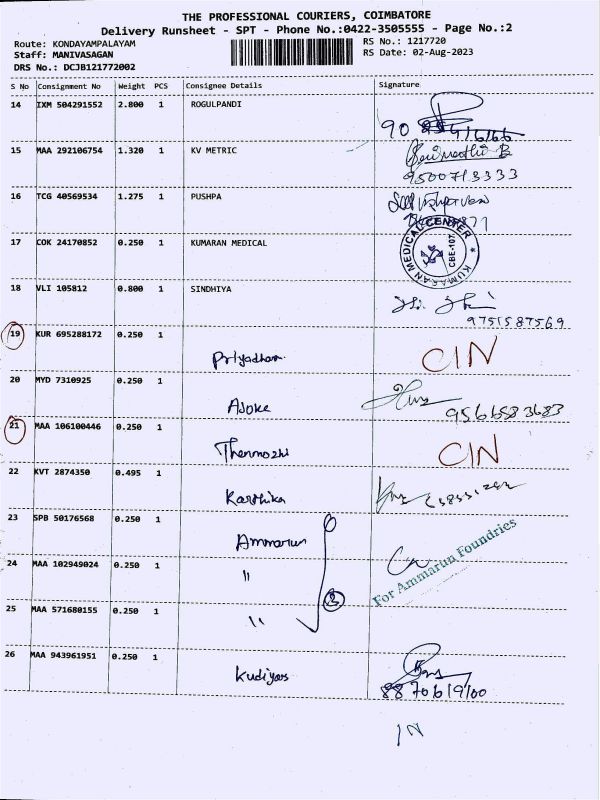 THE PROFESSIONAL COURIERS, COIMBATORE
Delivery Runsheet - SPT - Phone No.:0422-3505555 - Page No.:2
Route: KONDAYAMPALAYAM RS No.: 1217720
Staff: MANIVASAGAN RS Date: 02-Aug-2023
DRS No.: DCJB121772002
S No Consignment No Weight PCS Consignee Details Signature
14 IXM 504291552 2.800 1 ROGULPANDI
15 MAA 292106754 1.320 1 KV METRIC
9500713333
16 TCG 40569534 1.275 1 PUSHPA
17 COK 24170852 0.250 1 KUMARAN MEDICAL
KUMARAN MEDICAL CENTER
CBE-107
18 VLI 105812 0.800 1 SINDHIYA
9751587569
19 KUR 695288172 0.250 1
Priyadhar CIN
20 MYD 7310925 0.250 1
Asoke 9566583683
21 MAA 106100446 0.250 1
Thenmozhi CIN
22 KVT 2874350 0.495 1
Karthika
23 SPB 50176568 0.250 1
Ammarun
For Ammarun Foundries
24 MAA 102949024 0.250 1
"
3
25 MAA 571680155 0.250 1
"
26 MAA 943961951 0.250 1
Kudiyas
8870619100
IN